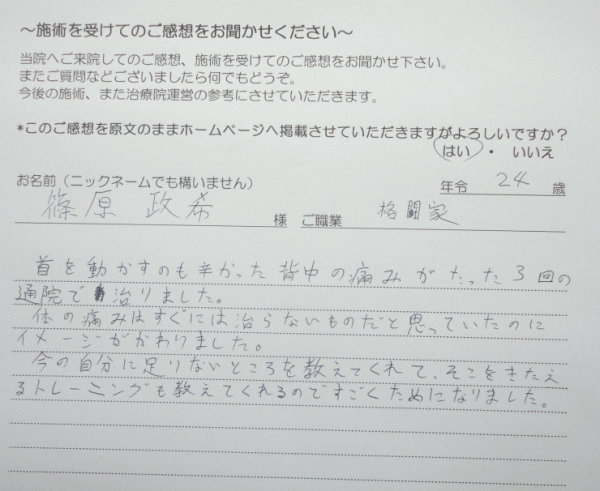 ～施術を受けてのご感想をお聞かせください～
当院へご来院してのご感想、施術を受けてのご感想をお聞かせ下さい。
またご質問などございましたら何でもどうぞ。
今後の施術、また治療院運営の参考にさせていただきます。
*このご感想を原文のままホームページへ掲載させていただきますがよろしいですか？
はい ・ いいえ
お名前（ニックネームでも構いません） 年令 24 歳
篠原 政希 様 ご職業 格闘家
首を動かすのも辛かった背中の痛みがたった3回の
通院で治りました。
体の痛みはすぐには治らないものだと思っていたのに
イメージがかわりました。
今の自分に足りないところを教えてくれて、そこをきたえ
るトレーニングも教えてくれるのですごくためになりました。